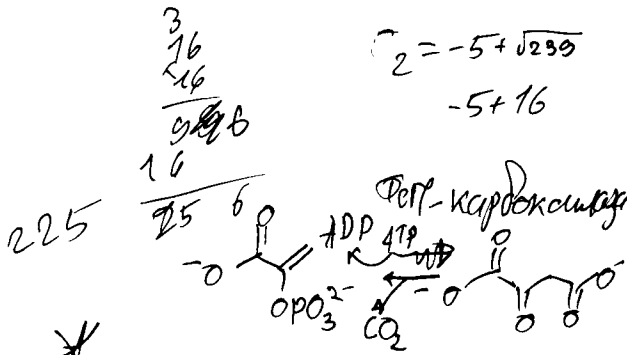 3
16
16
96
16
256
225
r₂ = -5 + √239
-5 + 16
ФЕП-карбоксилаза
ADP ATP
⁻O O
OPO₃²⁻
CO₂
⁻O O O O O⁻